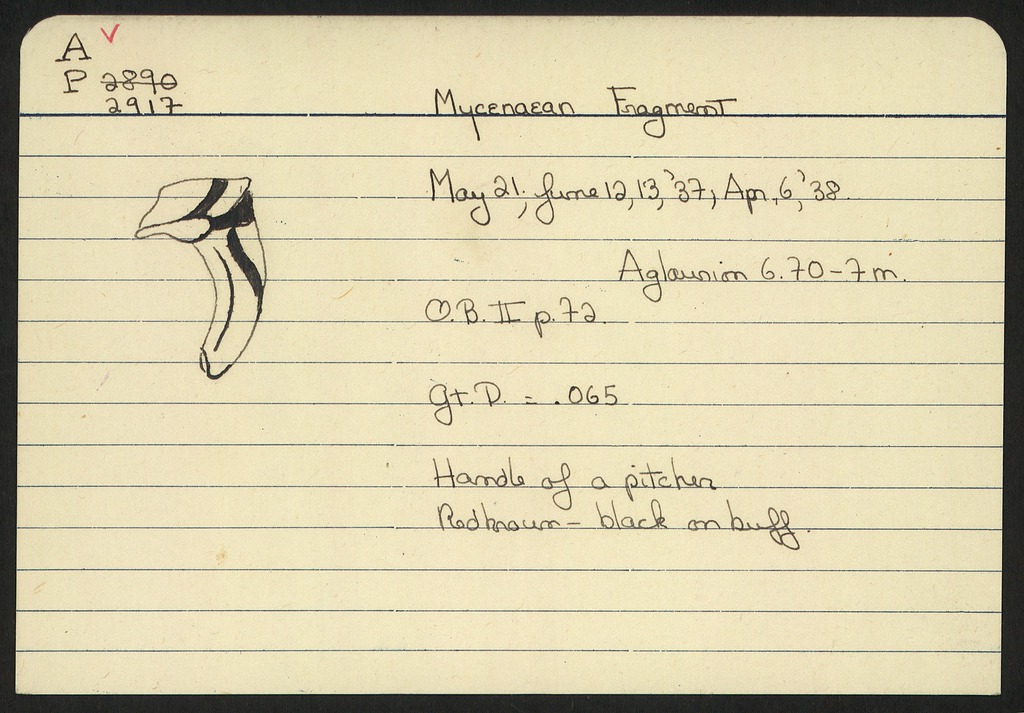 A
P 2890
2917
Mycenaean Fragment
May 21; June 12, 13, '37; Apr. 6, '38
Aglaurion 6.70-7 m.
O.B. II p. 72.
Gt. D. = .065
Handle of a pitcher
Redbrown - black on buff.